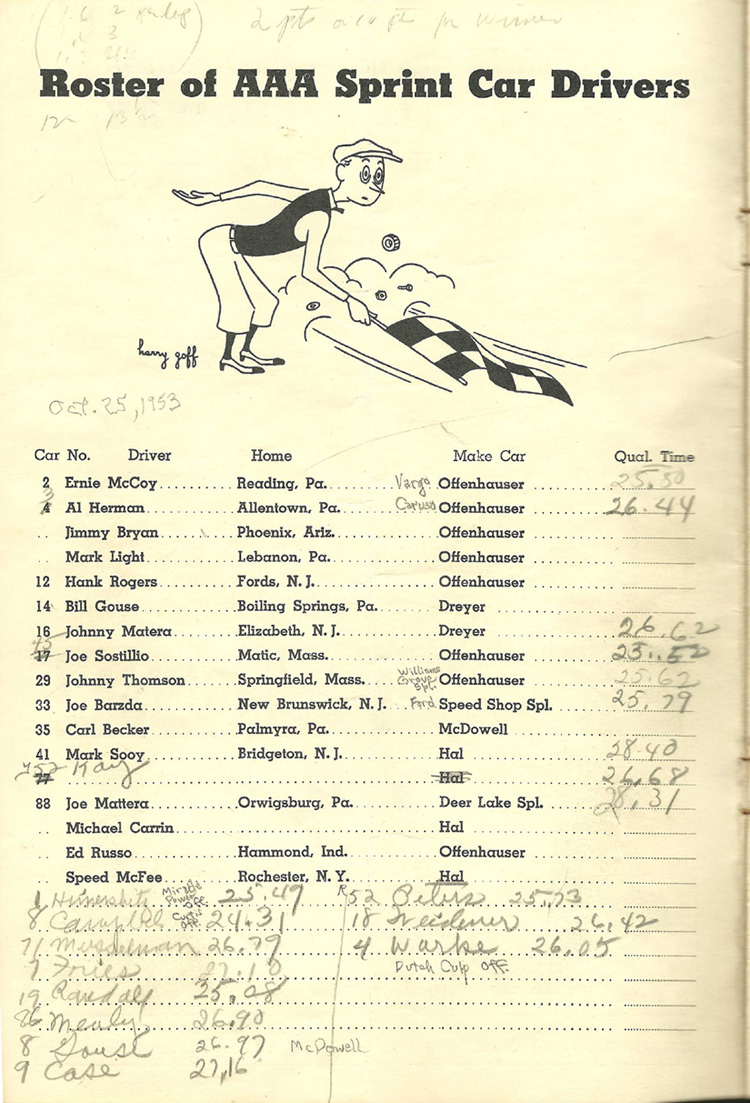 6 2 per lap
3
2 pts for winner
Roster of AAA Sprint Car Drivers
12
harry goff
Oct. 25, 1953
Car No. Driver Home Make Car Qual. Time
2 Ernie McCoy Reading, Pa. Vargo Offenhauser 25.50
3
4 Al Herman Allentown, Pa. Caruso Offenhauser 26.44
.. Jimmy Bryan Phoenix, Ariz. Offenhauser
.. Mark Light Lebanon, Pa. Offenhauser
12 Hank Rogers Fords, N. J. Offenhauser
14 Bill Gouse Boiling Springs, Pa. Dreyer
16 Johnny Matera Elizabeth, N. J. Dreyer 26.62
45
17 Joe Sostillio Matic, Mass. Offenhauser 25.52
29 Johnny Thomson Springfield, Mass. Williams Grove Spl. Offenhauser 25.62
33 Joe Barzda New Brunswick, N. J. Ford Speed Shop Spl. 25.79
35 Carl Becker Palmyra, Pa. McDowell
41 Mark Sooy Bridgeton, N. J. Hal 28.40
77 Kay Hal 26.68
88 Joe Mattera Orwigsburg, Pa. Deer Lake Spl. 28.31
.. Michael Carrin Hal
.. Ed Russo Hammond, Ind. Offenhauser
.. Speed McFee Rochester, N. Y. Hal
1 Hinnershitz Miracle Power Off. 25.49 52 Peters 25.73
8 Campbell Curtis Off. 24.31 18 Neidener 26.42
71 Musselman 26.79 4 Warke 26.05
Dutch Culp Off.
7 Fories 27.10
19 Randall 25.08
26 Mealy 26.90
8 Gouse 26.97 McDowell
9 Case 27.16